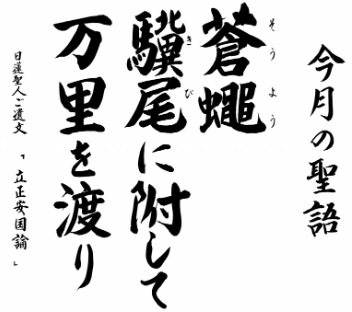 今月の聖語
蒼蠅
そうよう
驥尾に附して
きび
万里を渡り
日蓮聖人ご遺文 「立正安国論」